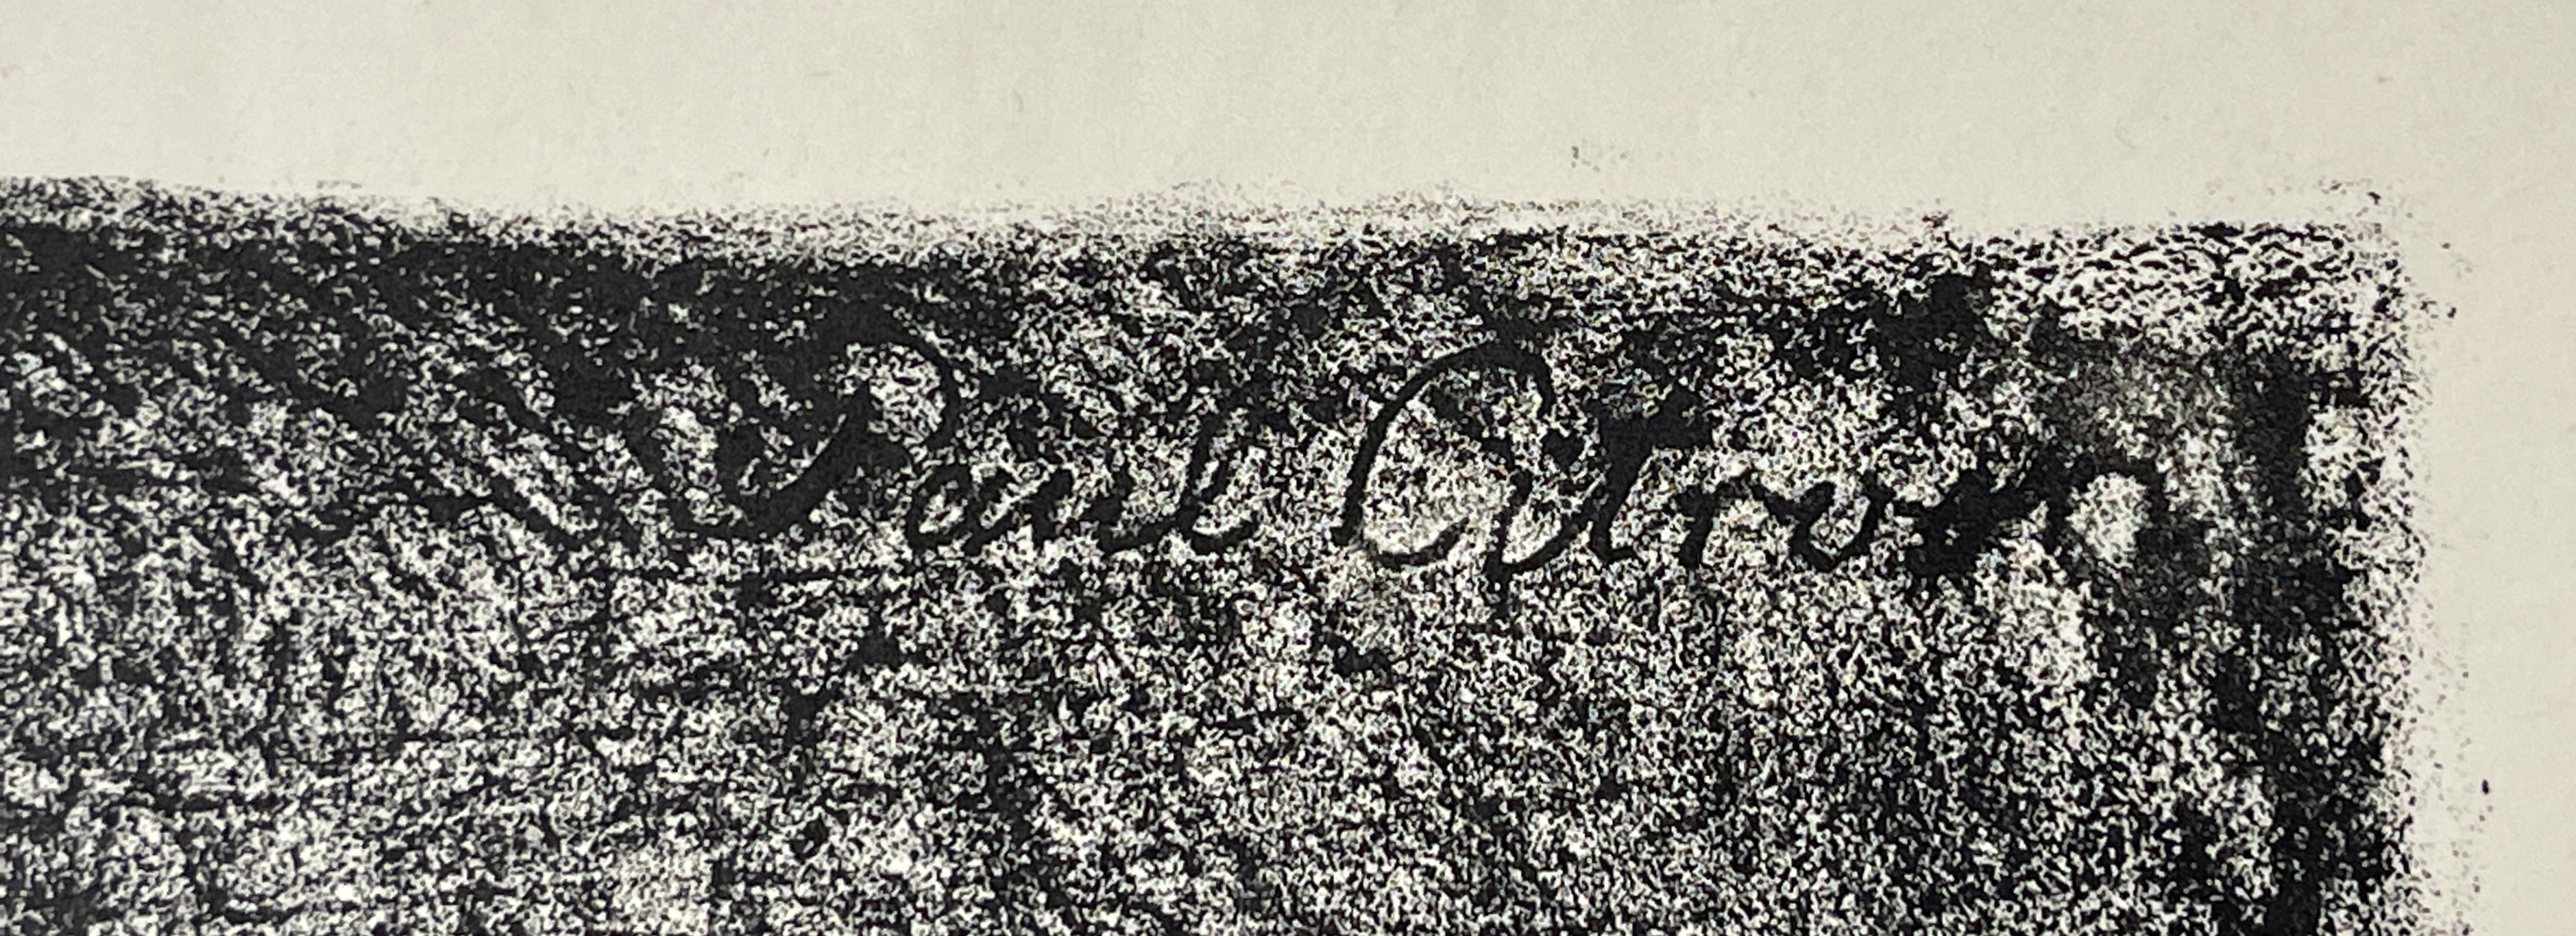 Paul Citroen